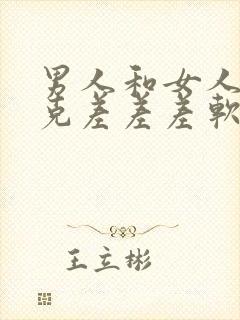 男人和女人
克差差差軟
王立彬